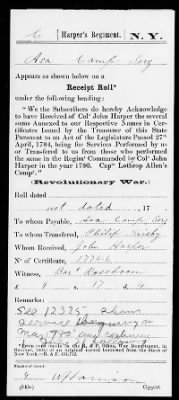 C | Harper's Regiment. | N. Y.
Asa Camp Serg
Appears as shown below on a
Receipt Roll*
under the following heading:
"We the Subscribers do hereby Acknowledge
to have Received of Colº John Harper the several
sums Annexed to our Respective Names in Cer-
tificates Issued by the Treasurer of this State
Pursuant to an Act of the Legislature Passed 27th
April, 1784, being for Services Performed by us
or Transferred to us from those who performed
the same in the Regimt Commanded by Colº John
Harper in the year 1780. Capt Lothrop Allen's
Compy."
(Revolutionary War.)
Roll dated
not dated, 17
To whom Payable, Asa Camp Serg
To whom Transferred, Philip
Whom Received, John Harper
Nº of Certificate, 17766
Witness, Bart Roseboom
£ 9 s. 17 d.
Remarks:
See 12325 Show
service
may
Copyist.